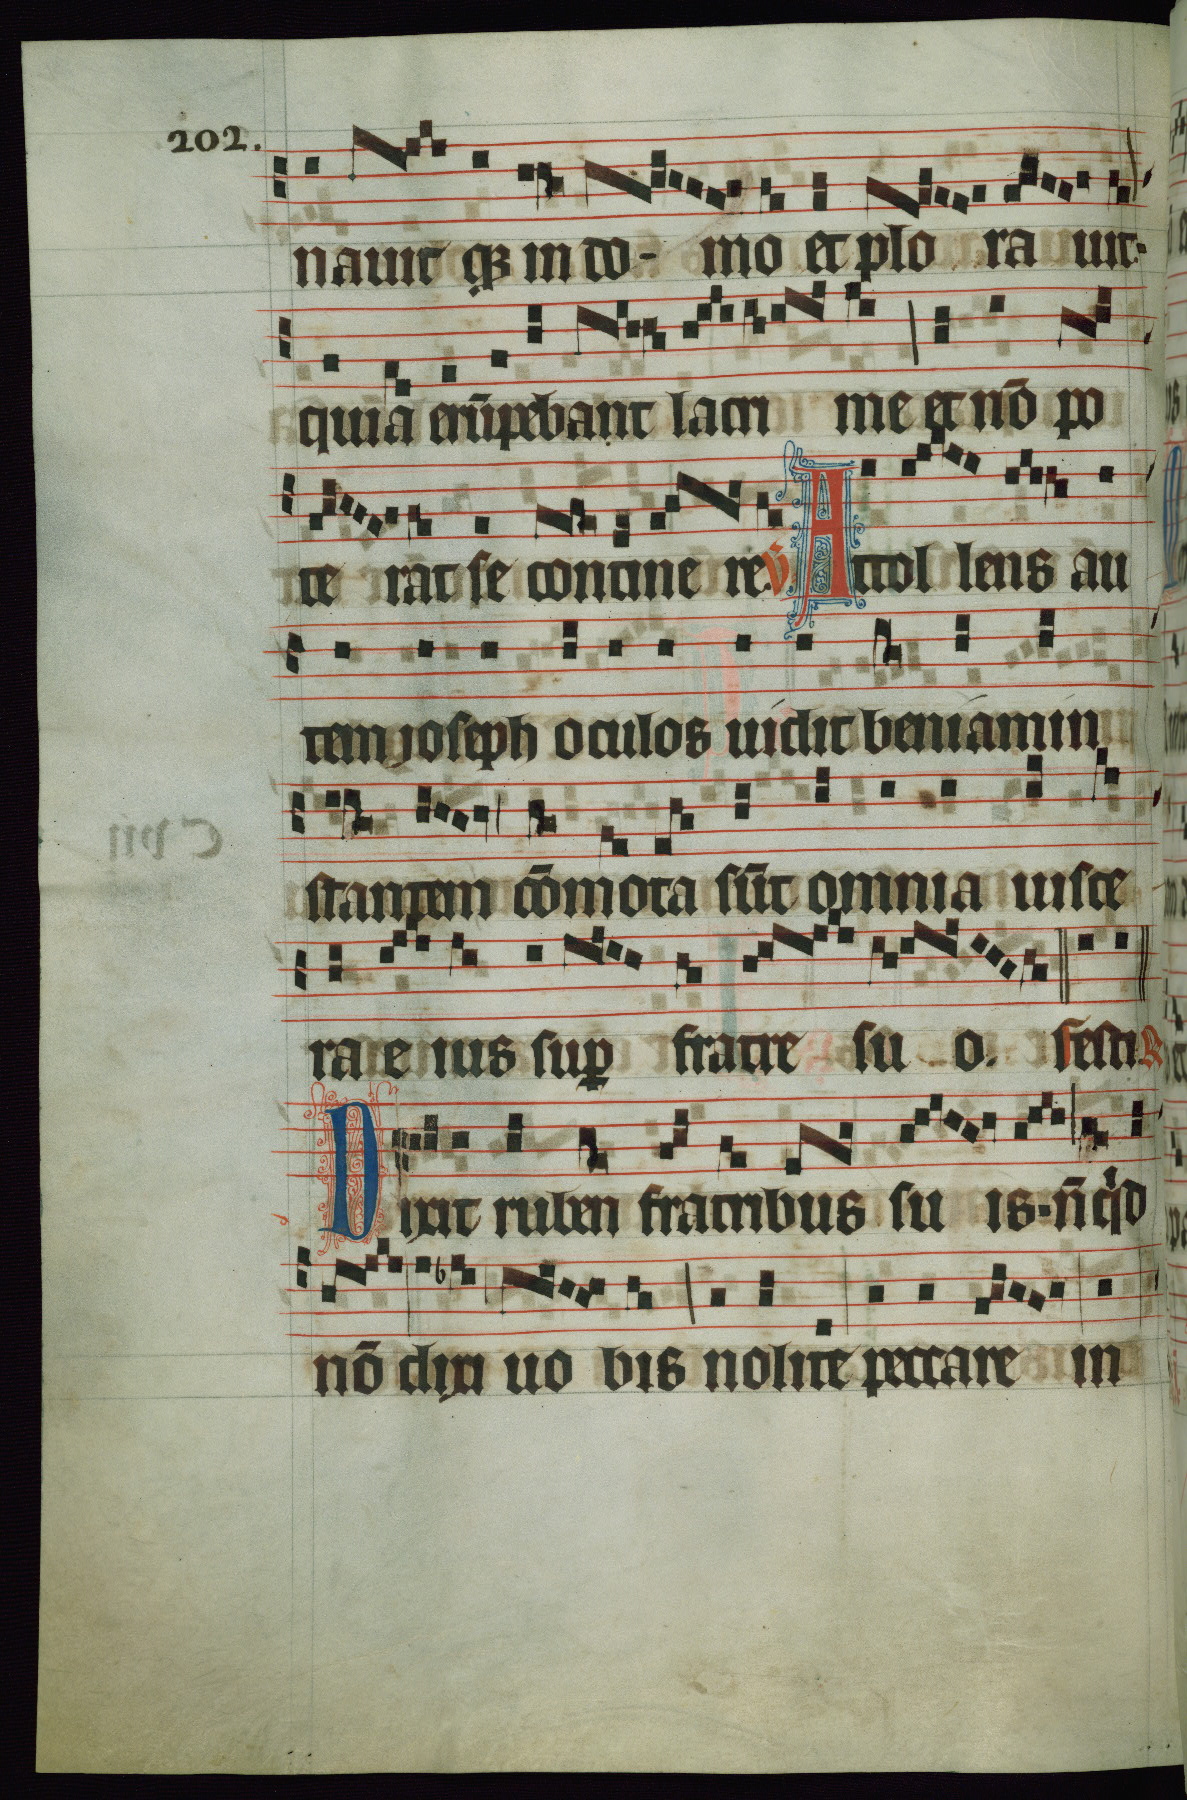 202.
nauit qꝫ in do- mo et plo ra uit-
quia erūpebant lacri me et nō po
te rāt se contine re. V Attol lens au
tem joseph oculos uidit beniamin
stantem cōmota sūt omnia uisce
ra e ius suꝑ fratre su o. festi. R
Dixit ruben fratribus su is. n̄ qͥd
nō dixi uo bis nolite peccare in